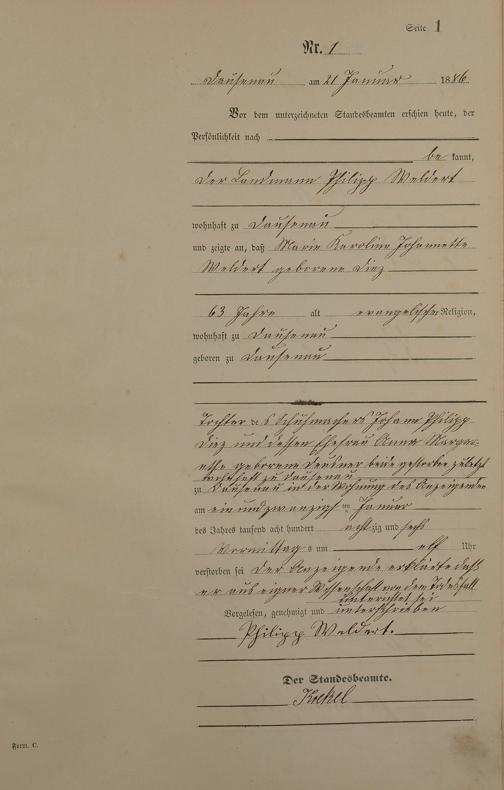 Seite 1
Nr. 1
Dausenau am 21 Januar 1886
Vor dem unterzeichneten Standesbeamten erschien heute, der
Persönlichkeit nach
be kannt,
der Landmann Philipp Weldert
wohnhaft zu Dausenau
und zeigte an, daß Marie Karoline Johannette
Weldert geborene Diez
63 Jahre alt evangelischer Religion,
wohnhaft zu Dausenau
geboren zu Dausenau
Tochter des Schuhmachers Johann Philipp
Diez und dessen Ehefrau Anna Margar-
ethe geborene beide gestorben zuletzt
wohnhaft zu Dausenau
zu Dausenau in der Wohnung des Anzeigenden
am ein und zwanzigsten Januar
des Jahres tausend acht hundert achtzig und sechs
Vormittags um elf Uhr
verstorben sei der Anzeigende erklärte daß
er aus eigner Wissenschaft von dem Todesfall
unterrichtet sei
Vorgelesen, genehmigt und unterschrieben
Philipp Weldert.
Der Standesbeamte.
Form. C.